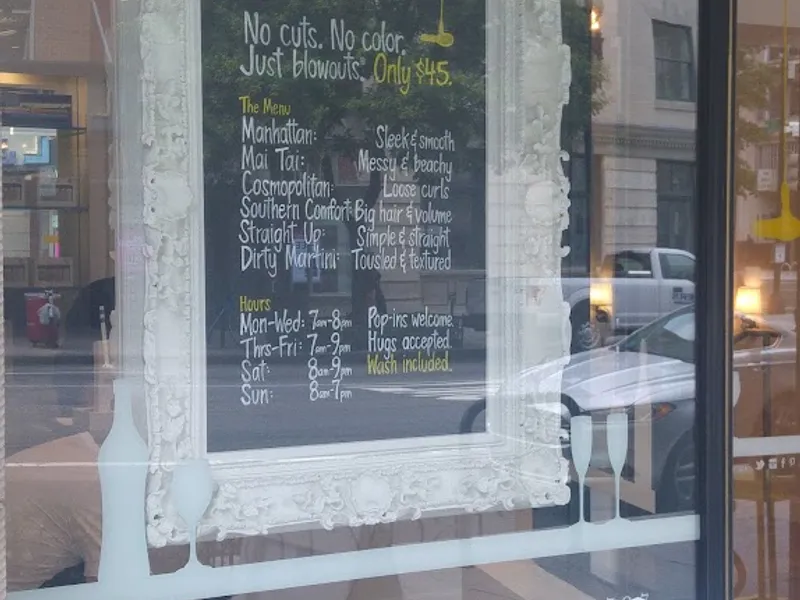 No cuts. No color.
Just blowouts. Only $45.
The Menu
Manhattan: Sleek & smooth
Mai Tai: Messy & beachy
Cosmopolitan: Loose curls
Southern Comfort: Big hair & volume
Straight Up: Simple & straight
Dirty Martini: Tousled & textured
Hours
Mon-Wed: 7am-8pm Pop-ins welcome.
Thrs-Fri: 7am-9pm Hugs accepted.
Sat: 8am-9pm Wash included.
Sun: 8am-7pm